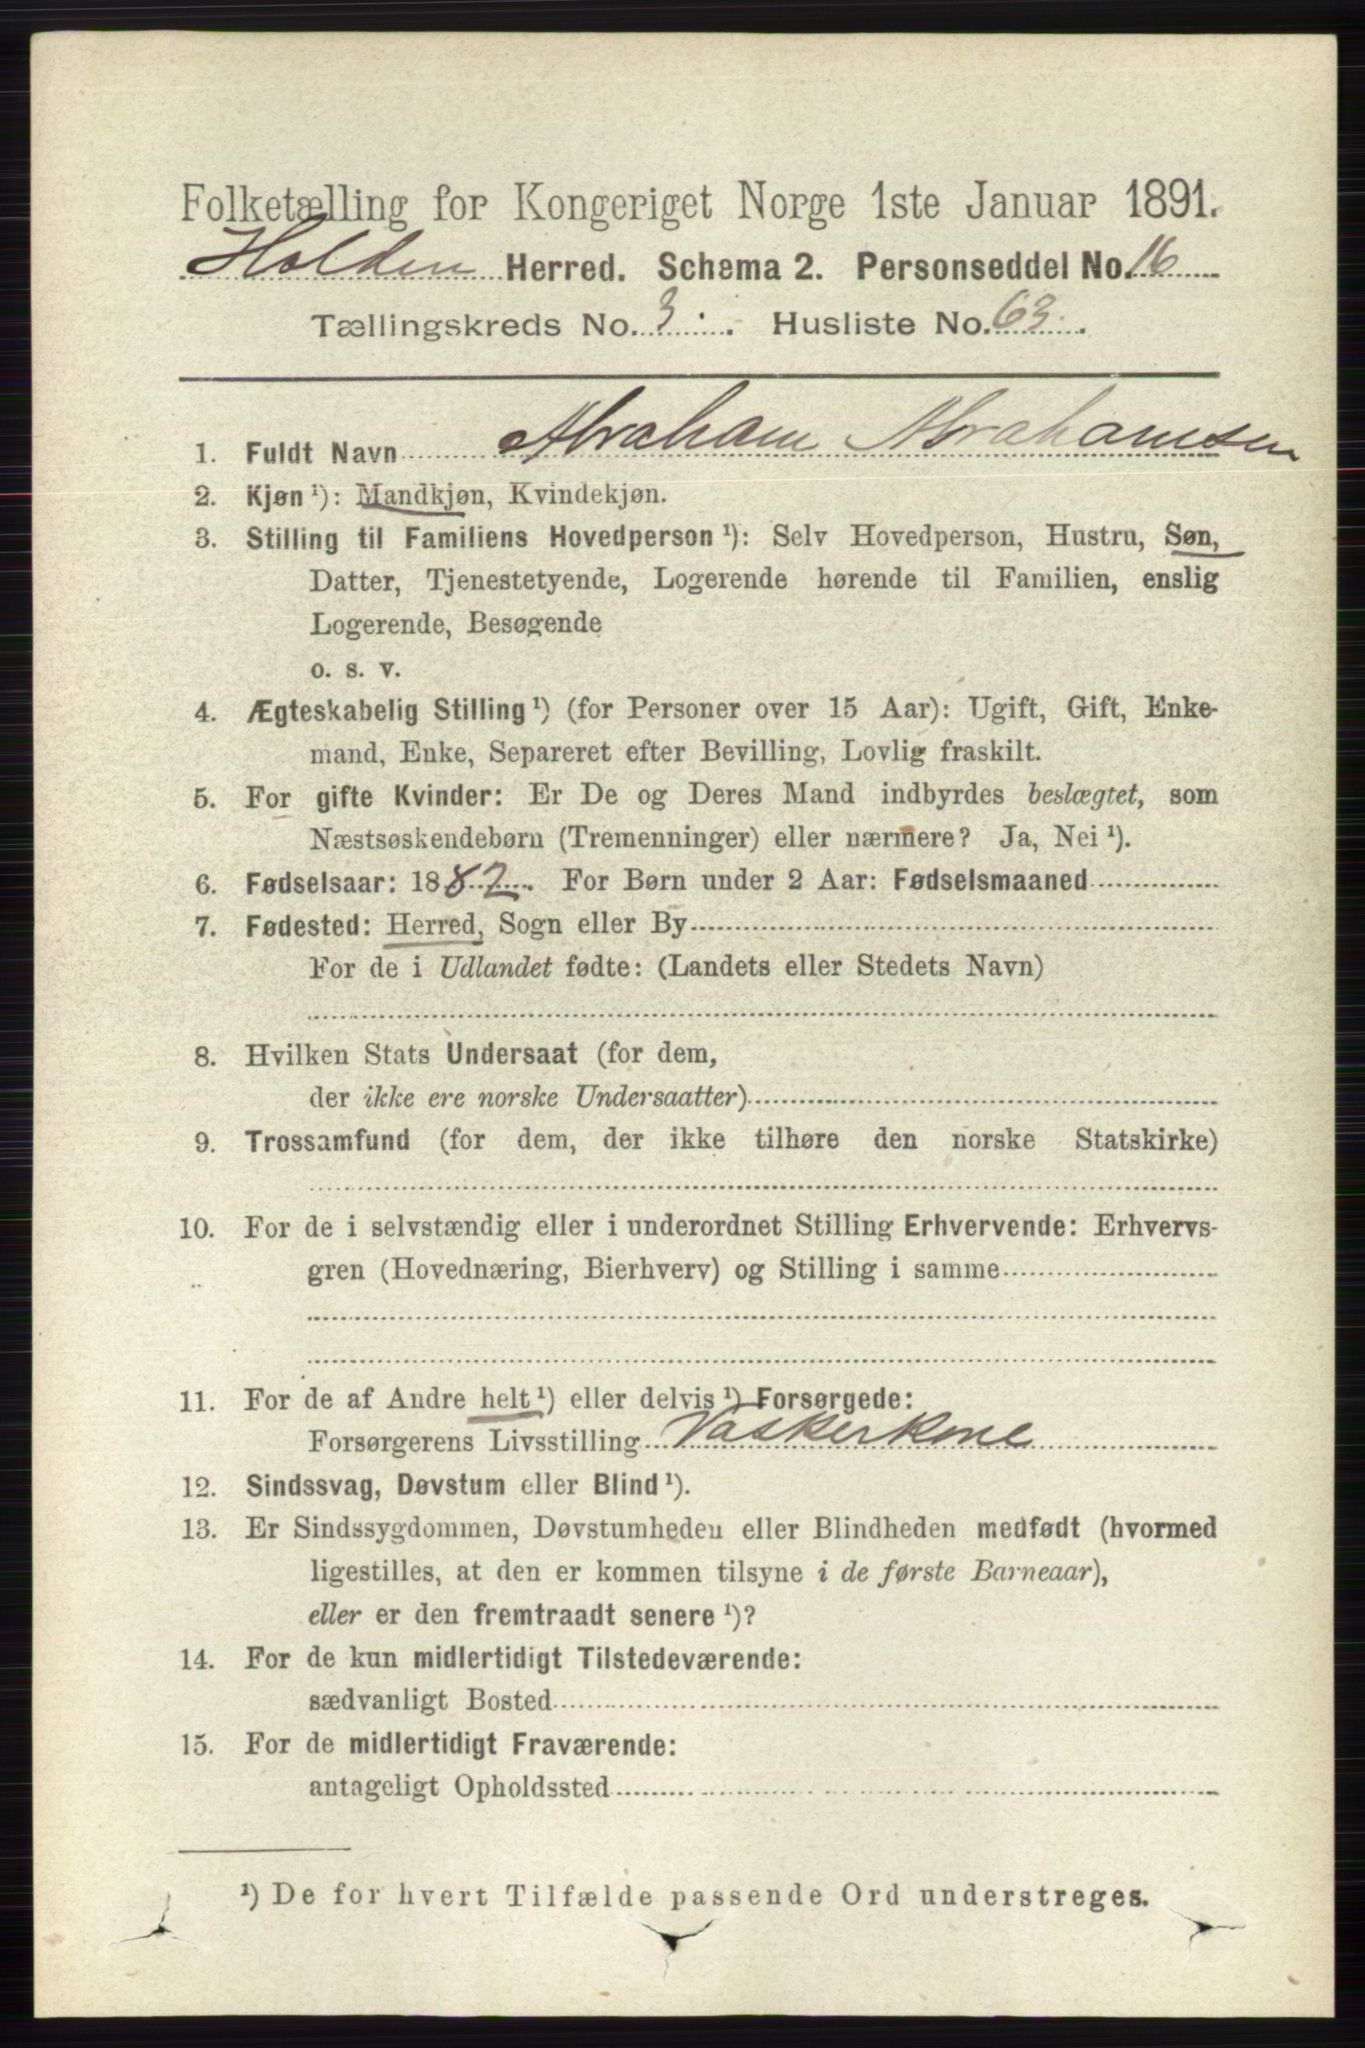 Folketælling for Kongeriget Norge 1ste Januar 1891.
Holden Herred. Schema 2. Personseddel No. 16
Tællingskreds No. 3. Husliste No. 63.
1. Fuldt Navn Abraham Abrahamsen
2. Kjøn ¹): Mandkjøn, Kvindekjøn.
3. Stilling til Familiens Hovedperson ¹): Selv Hovedperson, Hustru, Søn,
Datter, Tjenestetyende, Logerende hørende til Familien, enslig
Logerende, Besøgende
o. s. v.
4. Ægteskabelig Stilling ¹) (for Personer over 15 Aar): Ugift, Gift, Enke-
mand, Enke, Separeret efter Bevilling, Lovlig fraskilt.
5. For gifte Kvinder: Er De og Deres Mand indbyrdes beslægtet, som
Næstsøskendebørn (Tremenninger) eller nærmere? Ja, Nei ¹).
6. Fødselsaar: 1882. For Børn under 2 Aar: Fødselsmaaned
7. Fødested: Herred, Sogn eller By
For de i Udlandet fødte: (Landets eller Stedets Navn)
8. Hvilken Stats Undersaat (for dem,
der ikke ere norske Undersaatter)
9. Trossamfund (for dem, der ikke tilhøre den norske Statskirke)
10. For de i selvstændig eller i underordnet Stilling Erhvervende: Erhvervs-
gren (Hovednæring, Bierhverv) og Stilling i samme
11. For de af Andre helt ¹) eller delvis ¹) Forsørgede:
Forsørgerens Livsstilling Vaskerkone
12. Sindssvag, Døvstum eller Blind ¹).
13. Er Sindssygdommen, Døvstumheden eller Blindheden medfødt (hvormed
ligestilles, at den er kommen tilsyne i de første Barneaar),
eller er den fremtraadt senere ¹)?
14. For de kun midlertidigt Tilstedeværende:
sædvanligt Bosted
15. For de midlertidigt Fraværende:
antageligt Opholdssted
¹) De for hvert Tilfælde passende Ord understreges.